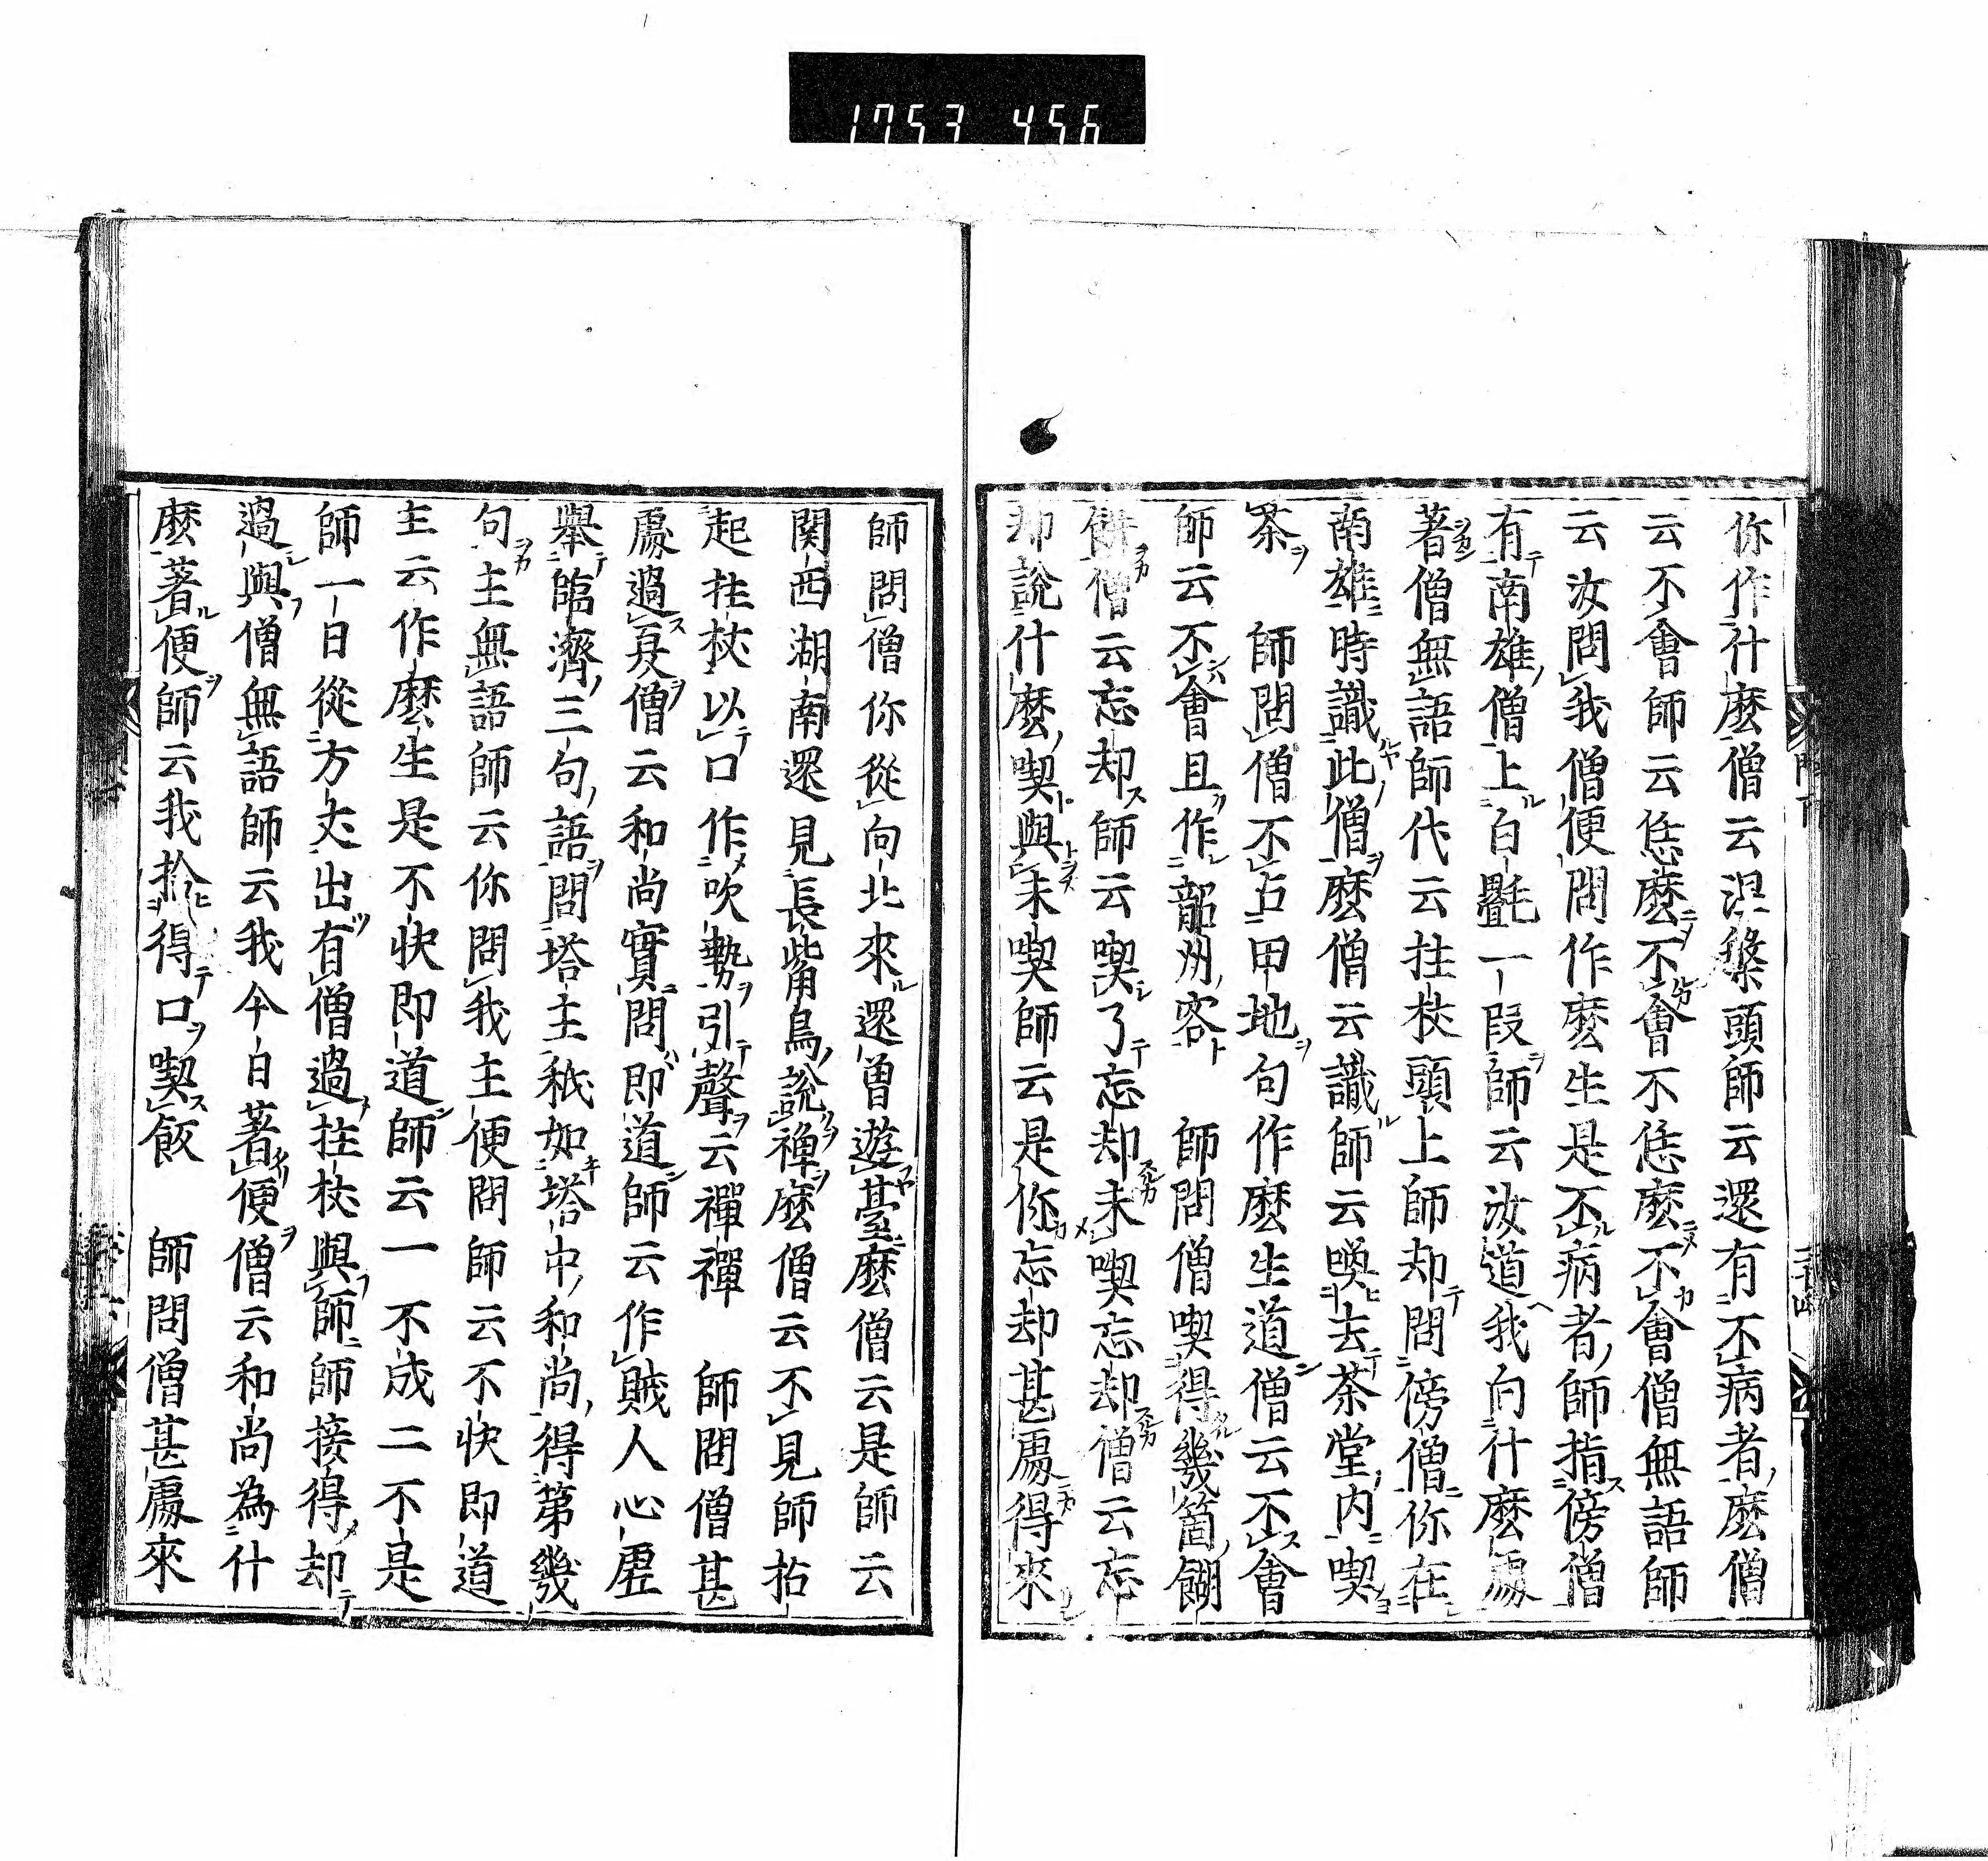 1753 456
你作什麼僧云涅槃頭師云還有不病者麼僧
云不會師云恁麼不會不恁麼不會僧無語師
云汝問我僧便問作麼生是不病者師指傍僧
有南雄僧上白㲲一段師云汝道我向什麼處
著僧無語師代云拄杖頭上師却問傍僧你在
南雄時識此僧麼僧云識師云喚去茶堂内喫
茶　師問僧不占甲地句作麼生道僧云不會
師云不會且作韶州客　師問僧喫得幾箇餬
餅僧云忘却師云喫了忘却未喫忘却僧云忘
却說什麼喫與未喫師云是你忘却甚處得來
師問僧你從向北來還曾遊臺麼僧云是師云
関西湖南還見長觜鳥說禪麼僧云不見師拈
起拄杖以口作吹勢引聲云禪禪　師問僧甚
處過夏僧云和尚實問即道師云作賊人心虛
舉臨濟三句語問塔主秖如塔中和尚得第幾
句主無語師云你問我主便問師云不快即道
主云作麼生是不快即道師云一不成二不是
師一日從方丈出有僧過拄杖與師師接得却
過與僧無語師云我今日著便僧云和尚為什
麼著便師云我拾得口喫飯　師問僧甚處來